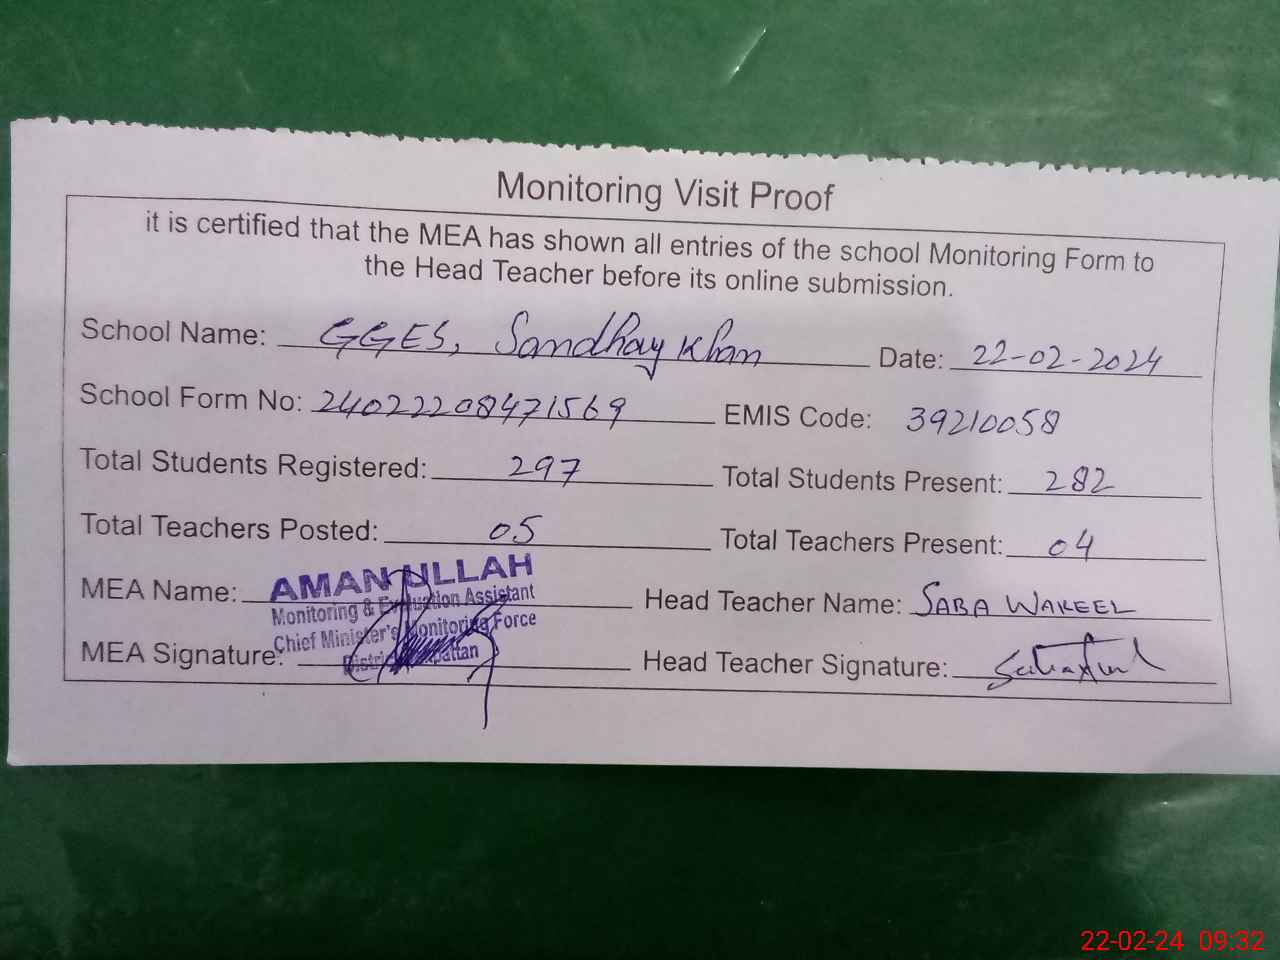 Monitoring Visit Proof
it is certified that the MEA has shown all entries of the school Monitoring Form to
the Head Teacher before its online submission.
School Name: GGES, Sandhay Khan Date: 22-02-2024
School Form No: 24022208471569 EMIS Code: 39210058
Total Students Registered: 297 Total Students Present: 282
Total Teachers Posted: 05 Total Teachers Present: 04
MEA Name: AMAN ULLAH Head Teacher Name: SABA WAKEEL
Monitoring & Evaluation Assistant
Chief Minister's Monitoring Force
MEA Signature: Head Teacher Signature:
22-02-24 09:32